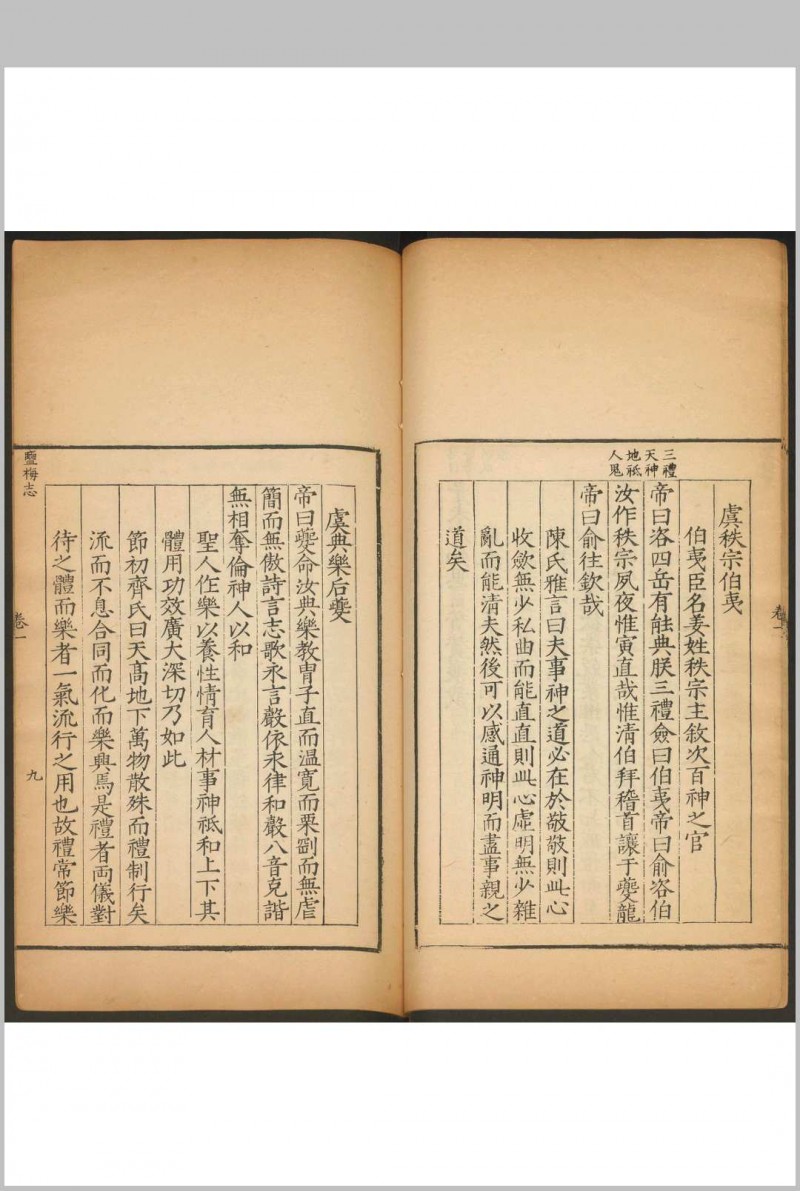 三禮
天神
地祗
人鬼
虞秩宗伯夷
伯夷臣名姜姓秩宗主敘次百神之官
帝曰咨四岳有能典朕三禮僉曰伯夷帝曰俞咨伯
汝作秩宗夙夜惟寅直哉惟清伯拜稽首讓于夔龍
帝曰俞往欽哉
陳氏雅言曰夫事神之道必在於敬敬則此心
收斂無少私曲而能直直則此心虛明無少雜
亂而能清夫然後可以感通神明而盡事親之
道矣
卷一
虞典樂后夔
帝曰夔命汝典樂教冑子直而溫寬而栗剛而無虐
簡而無傲詩言志歌永言聲依永律和聲八音克諧
無相奪倫神人以和
聖人作樂以養性情育人材事神祗和上下其
體用功效廣大深切乃如此
節初齊氏曰天高地下萬物散殊而禮制行矣
流而不息合同而化而樂興焉是禮者両儀對
待之體而樂者一氣流行之用也故禮常節樂
鹽梅志
卷一
九